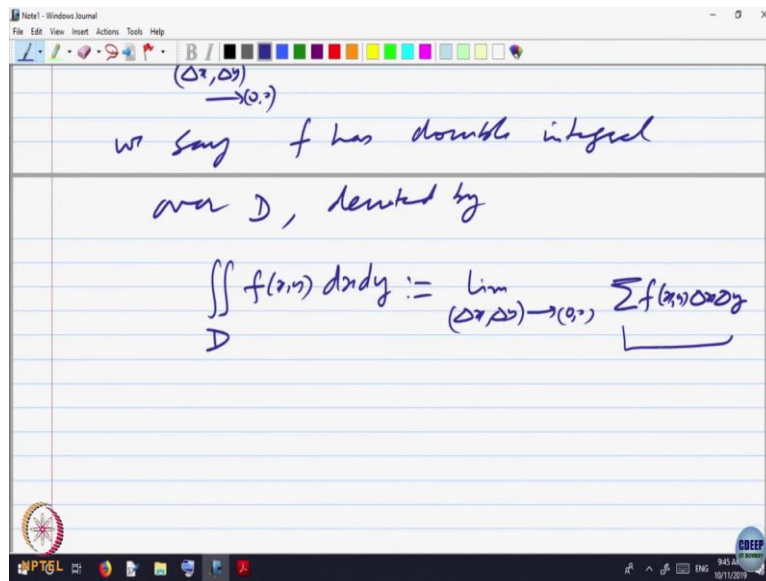 Note1 - Windows Journal
File Edit View Insert Actions Tools Help
B I
(Δx, Δy)
→(0,0)
we say f has double integral
over D, denoted by
∬ f(x,y) dxdy := lim Σf(x,y)ΔxΔy
D (Δx,Δy)→(0,0)
NPTEL
CDEEP
IIT BOMBAY
ENG
9:45 AM
10/11/2019